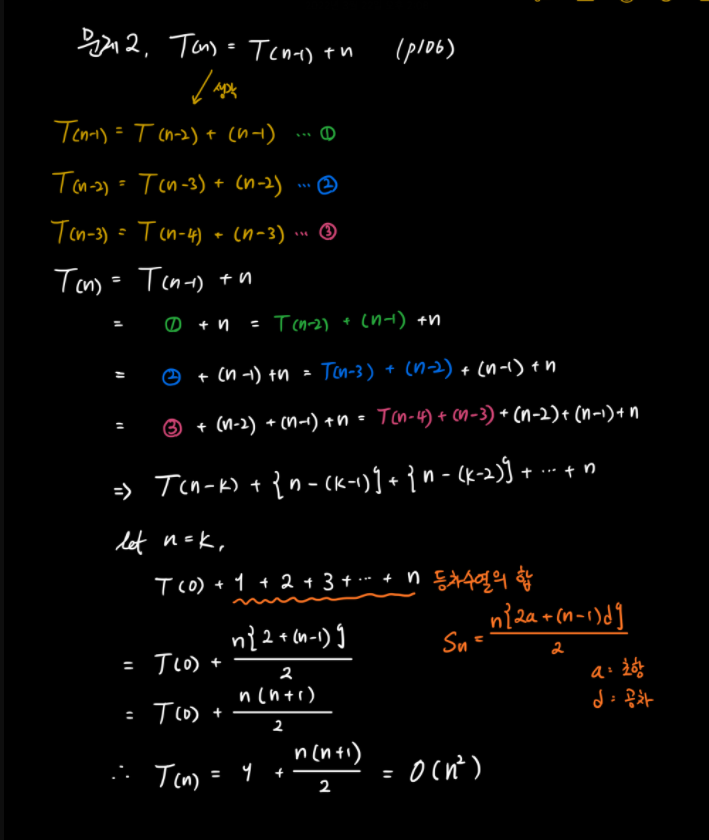 문제 2. T(n) = T(n-1) + n (p106)
T(n-1) = T(n-2) + (n-1) ... ①
T(n-2) = T(n-3) + (n-2) ... ②
T(n-3) = T(n-4) + (n-3) ... ③
T(n) = T(n-1) + n
= ① + n = T(n-2) + (n-1) + n
= ② + (n-1) + n = T(n-3) + (n-2) + (n-1) + n
= ③ + (n-2) + (n-1) + n = T(n-4) + (n-3) + (n-2) + (n-1) + n
⇒ T(n-k) + {n-(k-1)} + {n-(k-2)} + ... + n
let n=k,
T(0) + 1 + 2 + 3 + ... + n 등차수열의 합
= T(0) + n{2+(n-1)}/2
Sn = n{2a+(n-1)d}/2
a: 초항
d: 공차
= T(0) + n(n+1)/2
∴ T(n) = 1 + n(n+1)/2 = O(n²)